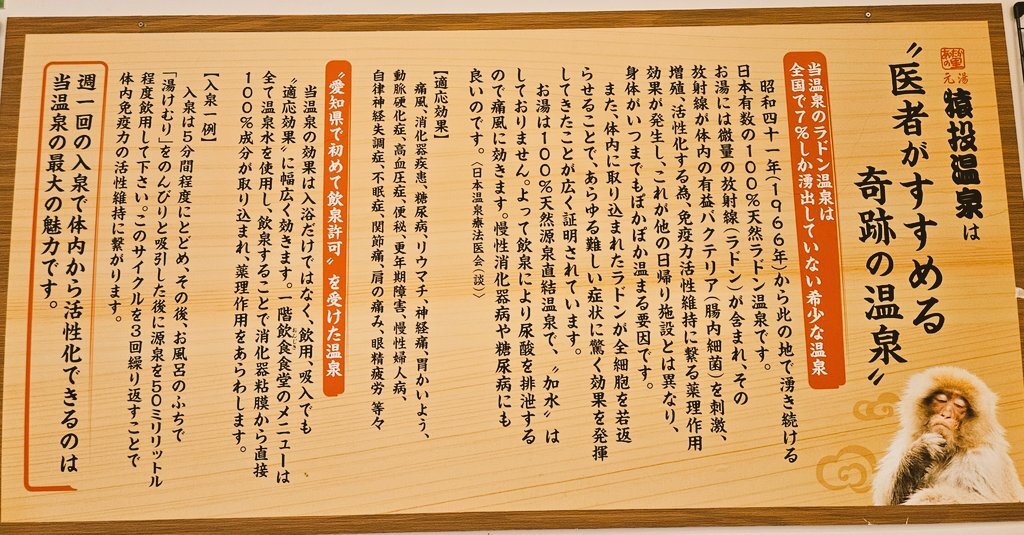 元湯
猿投温泉は
〝医者がすすめる
奇跡の温泉〟
当温泉のラドン温泉は
全国で7%しか湧出していない希少な温泉
昭和四十一年(1966年)から此の地で湧き続ける
日本有数の100%天然ラドン温泉です。
お湯には微量の放射線(ラドン)が含まれ、その
放射線が体内の有益バクテリア(腸内細菌)を刺激、
増殖、活性化する為、免疫力活性維持に繋る薬理作用
効果が発生し、これが他の日帰り施設とは異なり、
身体がいつまでもぽかぽか温まる要因です。
また、体内に取り込まれたラドンが全細胞を若返
らせることで、あらゆる難しい症状に驚く効果を発揮
してきたことが広く証明されています。
お湯は100%天然源泉直結温泉で、〝加水〟は
しておりません。よって飲泉により尿酸を排泄する
ので痛風に効きます。慢性消化器病や糖尿病にも
良いのです。〈日本温泉療法医会(談)〉
【適応効果】
痛風、消化器疾患、糖尿病、リウマチ、神経痛、胃かいよう、
動脈硬化症、高血圧症、便秘、更年期障害、慢性婦人病、
自律神経失調症、不眠症、関節痛、肩の痛み、眼精疲労 等々
〝愛知県で初めて飲泉許可〟を受けた温泉
当温泉の効果は入浴だけではなく、飲用、吸入でも
〝適応効果〟に幅広く効きます。一階飲食食堂のメニューは
全て温泉水を使用し、飲泉することで消化器粘膜から直接
100%成分が取り込まれ、薬理作用をあらわします。
【入泉一例】
入泉は5分間程度にとどめ、その後、お風呂のふちで
「湯けむり」をのんびりと吸引した後に源泉を50ミリリットル
程度飲用して下さい。このサイクルを3回繰り返すことで
体内免疫力の活性維持に繋がります。
週一回の入泉で体内から活性化できるのは
当温泉の最大の魅力です。